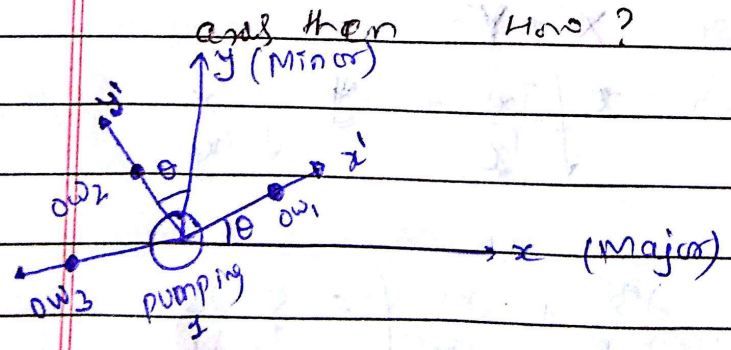 axis then How?
y (Minor)
y'
θ
x'
OW2
OW1
θ
x (Major)
OW3
pumping
1